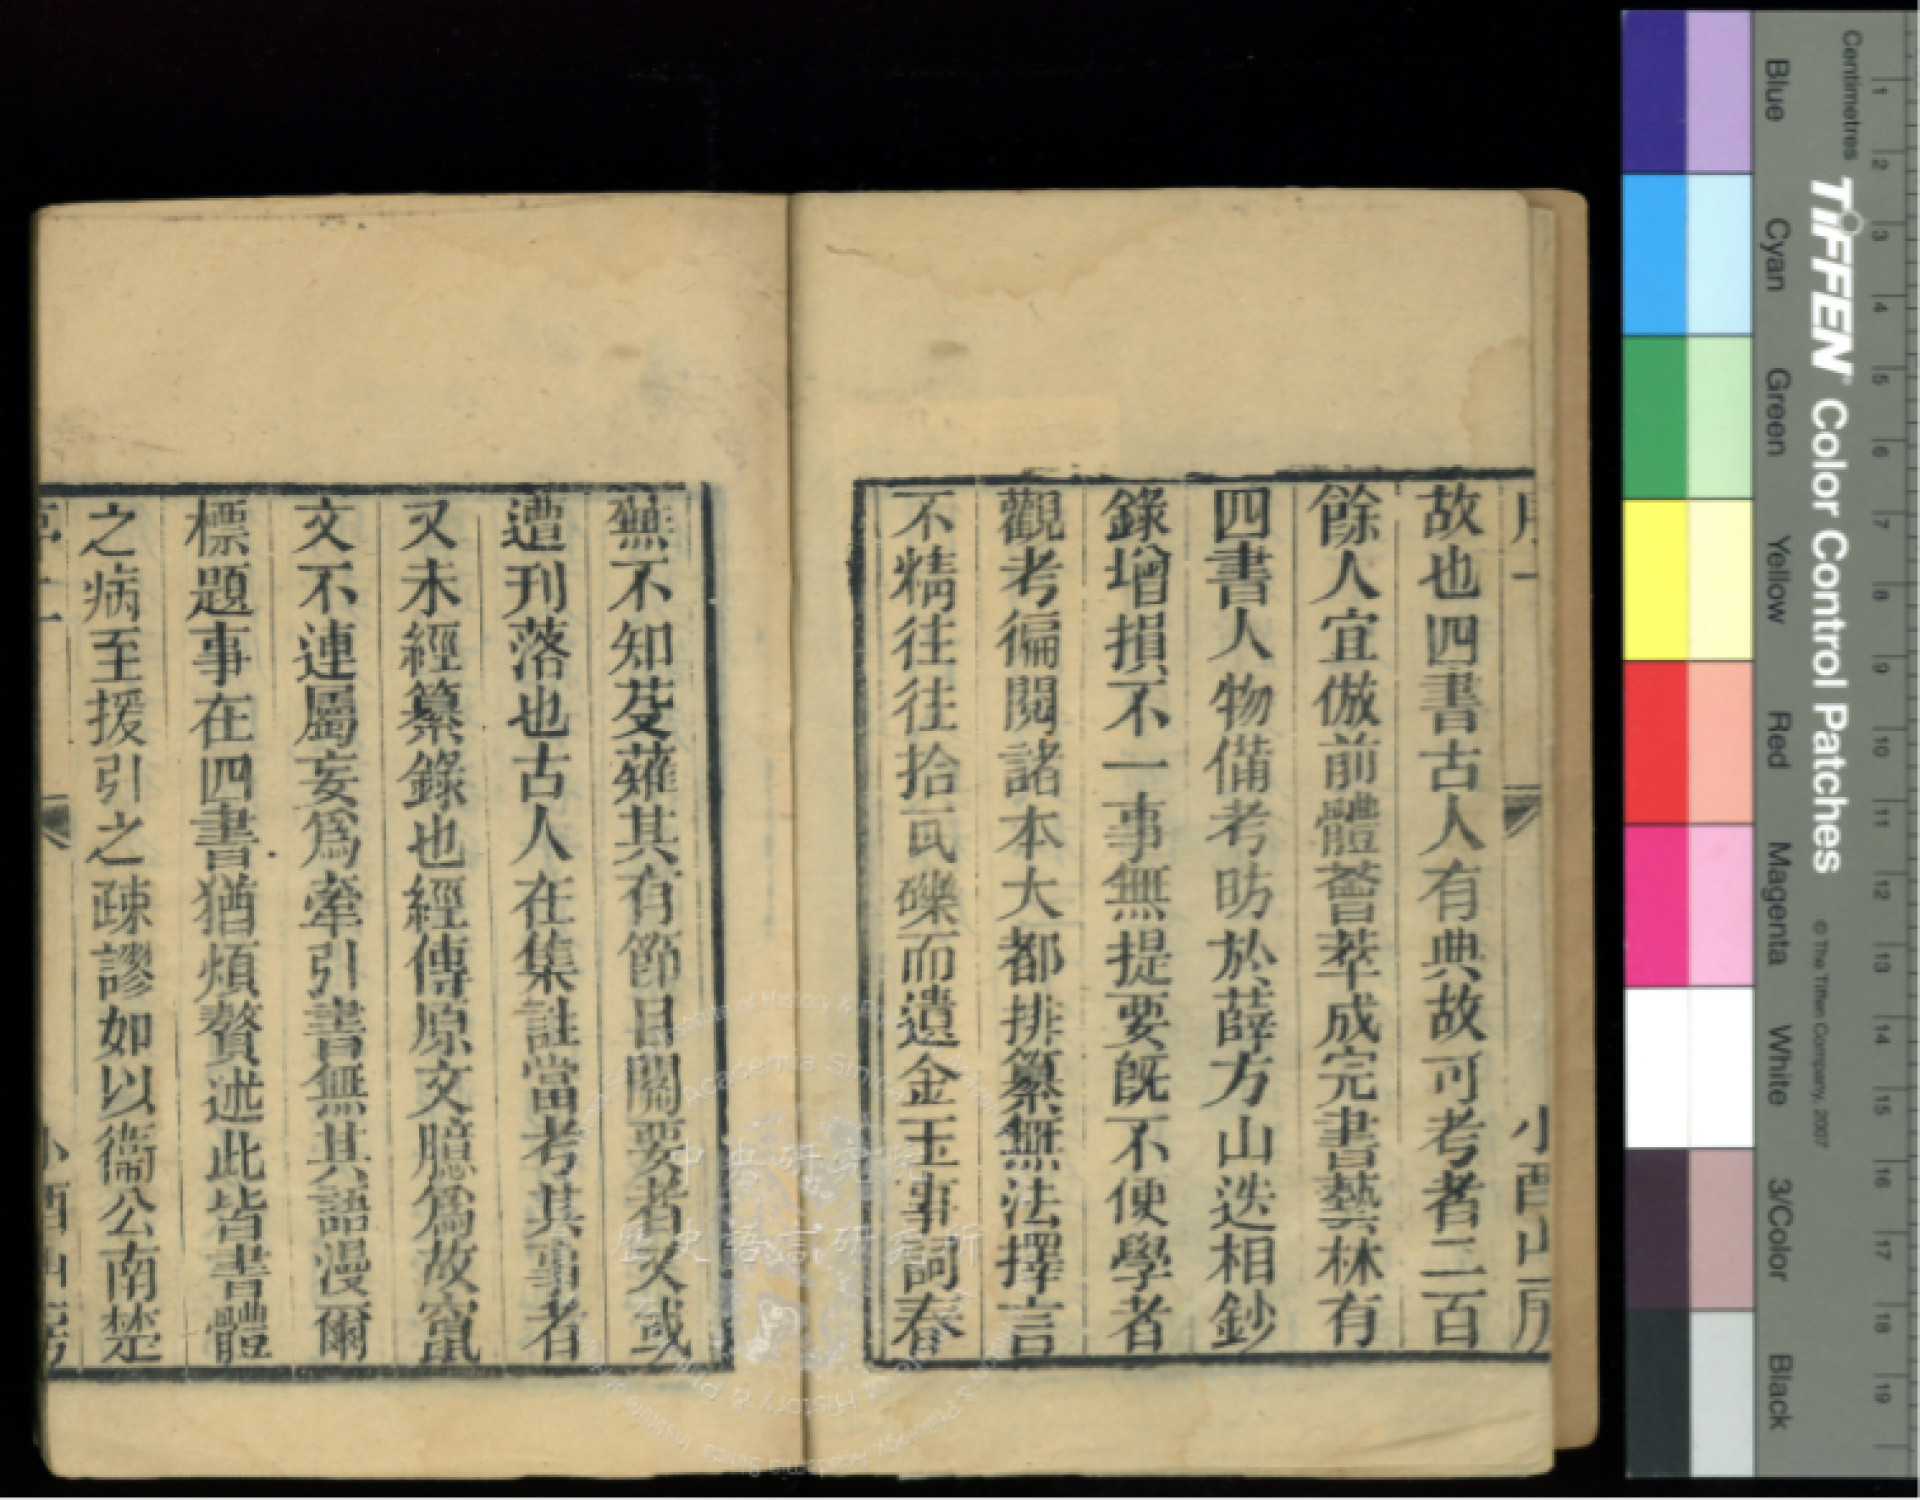 故也四書古人有典故可考者二百
餘人宜倣前體薈萃成完書藝林有
四書人物備考昉於薛方山迭相鈔
錄增損不一事無提要既不便學者
觀考徧閱諸本大都排纂無法擇言
不精往往拾瓦礫而遺金玉事詞舂
無不知芟薙其有節目關要者又或
遭刊落也古人在集註當考其事者
又未經纂錄也經傳原文臆爲故竄
文不連屬妄爲牽引書無其語漫爾
標題事在四書猶煩贅述此皆書體
之病至援引之疎謬如以衞公南楚
小酉山房
小酉山房
中央研究院
歷史語言研究所
Academia Sinica
Centimetres
1 2 3 4 5 6 7 8 9 10 11 12 13 14 15 16 17 18 19
TIFFEN Color Control Patches
© The Tiffen Company, 2007
Blue
Cyan
Green
Yellow
Red
Magenta
White
3/Color
Black